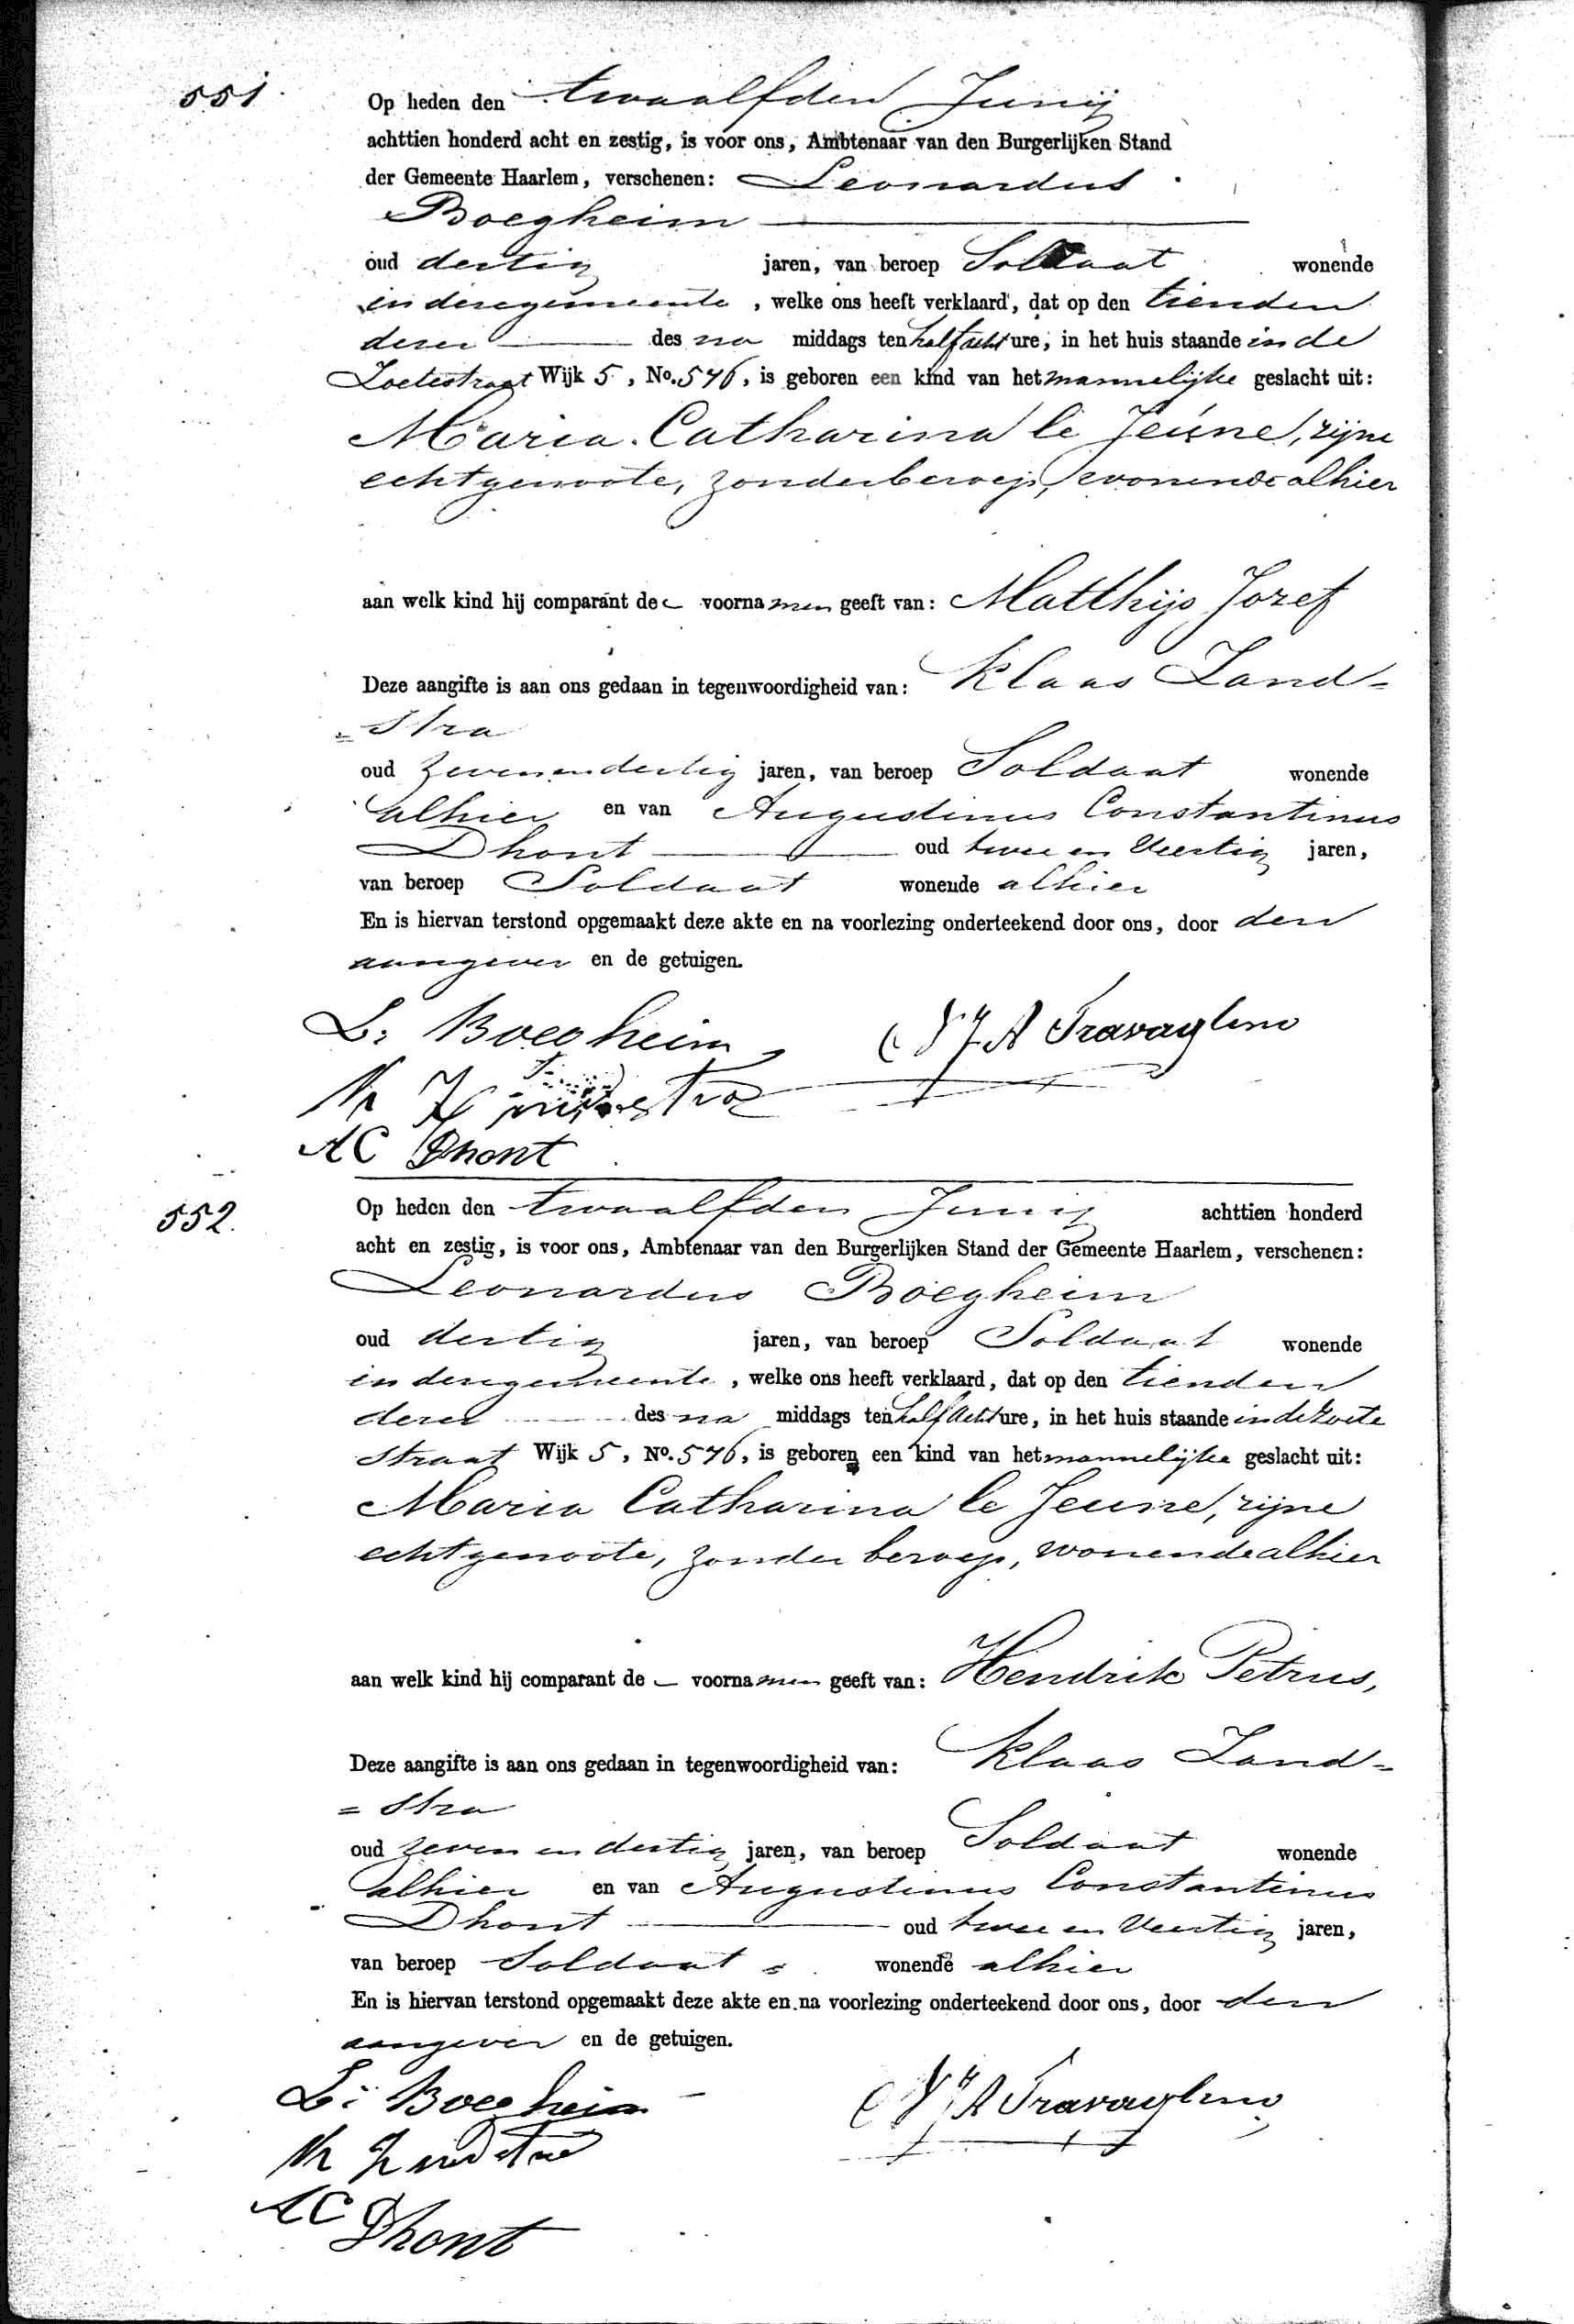 551.
Op heden den twaalfden Junij
achttien honderd acht en zestig, is voor ons, Ambtenaar van den Burgerlijken Stand
der Gemeente Haarlem, verschenen: Leonardus
Boegheim
oud dertig jaren, van beroep Soldaat wonende
in deze gemeente, welke ons heeft verklaard, dat op den tienden
dezer des na middags ten half acht ure, in het huis staande in de
Zoetestraat Wijk 5, No. 576, is geboren een kind van het mannelijke geslacht uit:
Maria Catharina le Jeúne, zijne
echtgenoote, zonder beroep, wonende alhier
aan welk kind hij comparant de voornamen geeft van: Matthijs Jozef
Deze aangifte is aan ons gedaan in tegenwoordigheid van: Klaas Land=
=stra
oud zeven en dertig jaren, van beroep Soldaat wonende
alhier en van Augustinus Constantinus
Dhont oud twee en Veertig jaren,
van beroep Soldaat wonende alhier
En is hiervan terstond opgemaakt deze akte en na voorlezing onderteekend door ons, door den
aangever en de getuigen.
L: Boegheim Travaglino
AC Dhont
552.
Op heden den twaalfden Junij achttien honderd
acht en zestig, is voor ons, Ambtenaar van den Burgerlijken Stand der Gemeente Haarlem, verschenen:
Leonardus Boegheim
oud dertig jaren, van beroep Soldaat wonende
in deze gemeente, welke ons heeft verklaard, dat op den tienden
dezer des na middags ten half acht ure, in het huis staande in de Zoete
straat Wijk 5, No. 576, is geboren een kind van het mannelijke geslacht uit:
Maria Catharina le Jeune, zijne
echtgenoote, zonder beroep, wonende alhier
aan welk kind hij comparant de voornamen geeft van: Hendrik Petrus,
Deze aangifte is aan ons gedaan in tegenwoordigheid van: Klaas Land=
=stra
oud zeven en dertig jaren, van beroep Soldaat wonende
alhier en van Augustinus Constantinus
Dhont oud twee en Veertig jaren,
van beroep Soldaat wonende alhier
En is hiervan terstond opgemaakt deze akte en na voorlezing onderteekend door ons, door den
aangever en de getuigen.
L: Boegheim Travaglino
K Landstra
AC Dhont